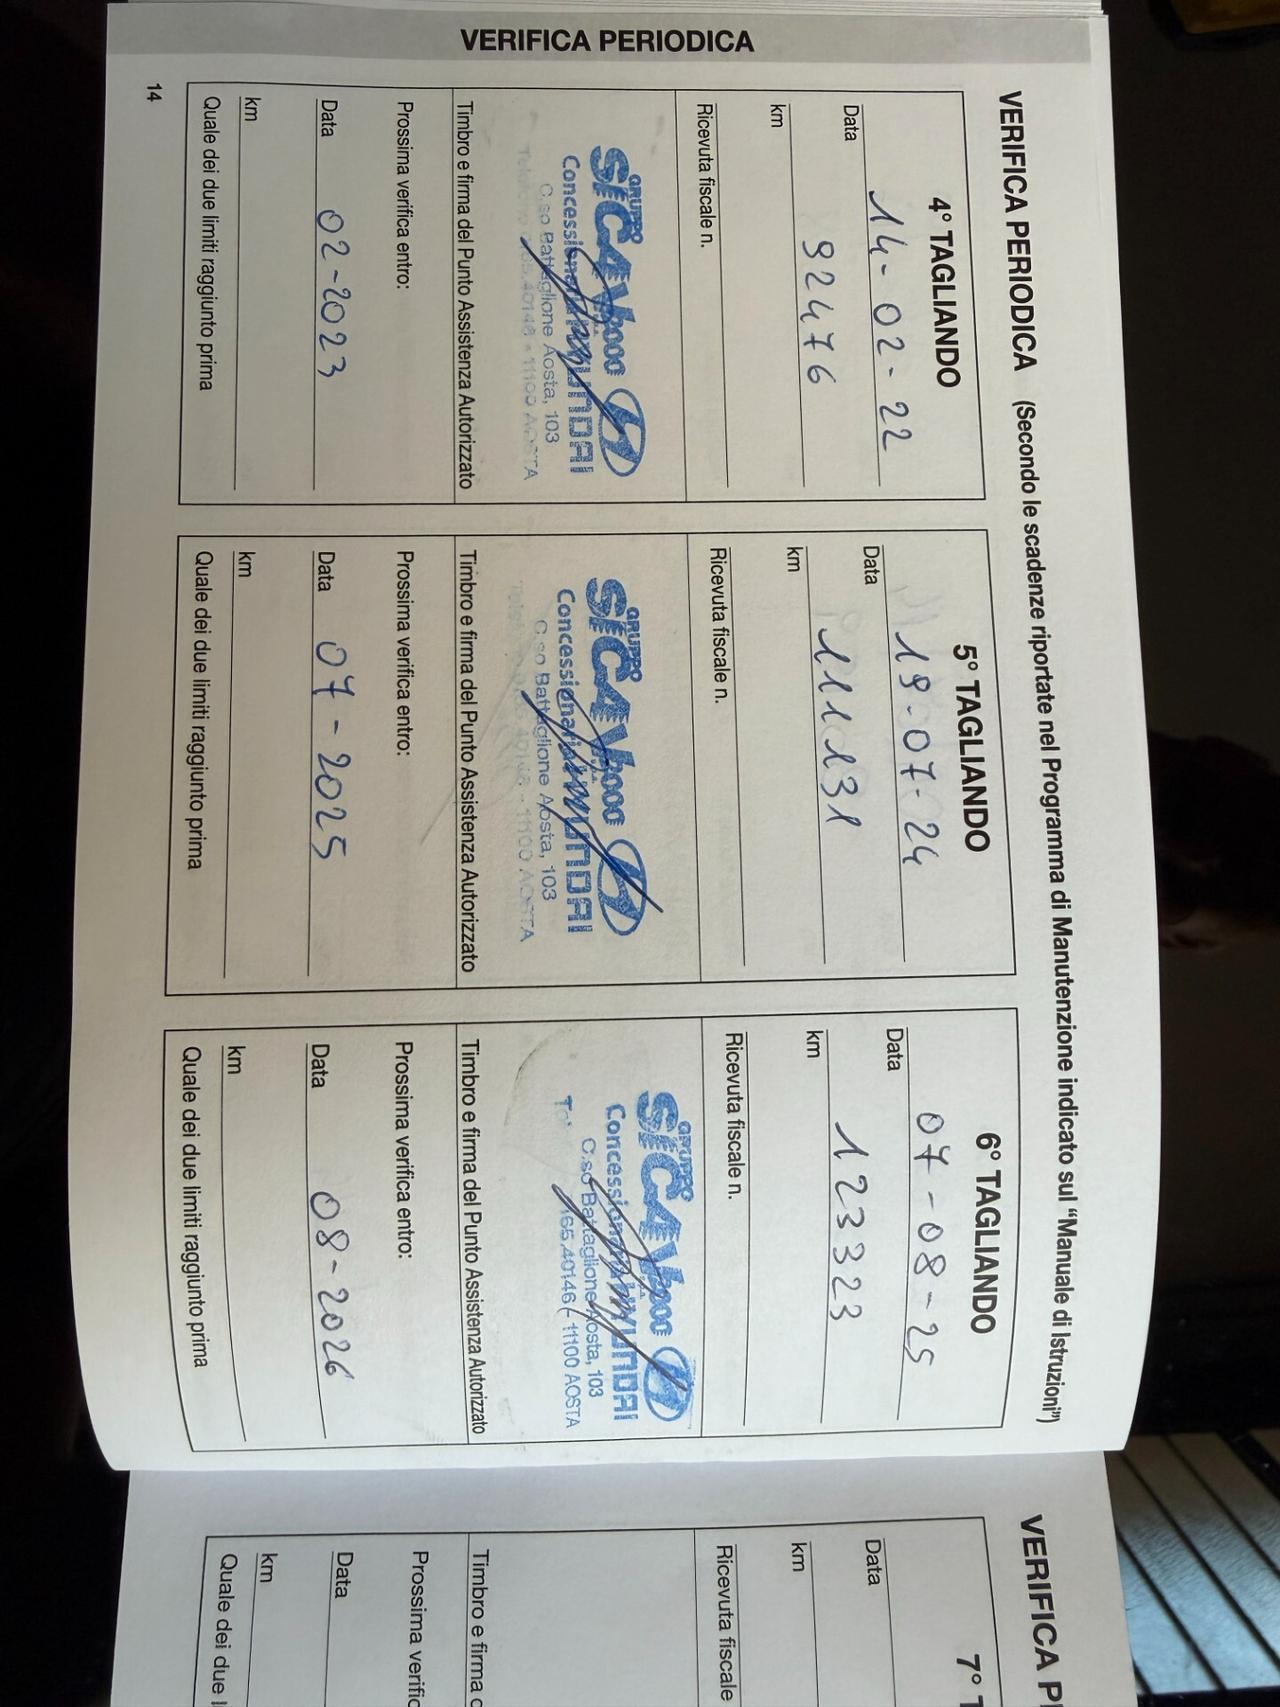 VERIFICA PERIODICA
VERIFICA PERIODICA (Secondo le scadenze riportate nel Programma di Manutenzione indicato sul “Manuale di Istruzioni”)
4° TAGLIANDO
Data 14-02-22
km 92476
Ricevuta fiscale n.
GRUPPO
SICAV2000
Concessionaria HYUNDAI
C.so Battaglione Aosta, 103
11100 AOSTA
Timbro e firma del Punto Assistenza Autorizzato
Prossima verifica entro:
Data 02-2023
km
Quale dei due limiti raggiunto prima
5° TAGLIANDO
Data 19-07-24
km 111131
Ricevuta fiscale n.
GRUPPO
SICAV2000
Concessionaria HYUNDAI
C.so Battaglione Aosta, 103
11100 AOSTA
Timbro e firma del Punto Assistenza Autorizzato
Prossima verifica entro:
Data 07-2025
km
Quale dei due limiti raggiunto prima
6° TAGLIANDO
Data 07-08-25
km 123323
Ricevuta fiscale n.
GRUPPO
SICAV2000
Concessionaria HYUNDAI
C.so Battaglione Aosta, 103
165.40146 - 11100 AOSTA
Timbro e firma del Punto Assistenza Autorizzato
Prossima verifica entro:
Data 08-2026
km
Quale dei due limiti raggiunto prima
14
VERIFICA P
7° T
Data
km
Ricevuta fiscale
Timbro e firma
Prossima verific
Data
km
Quale dei due l